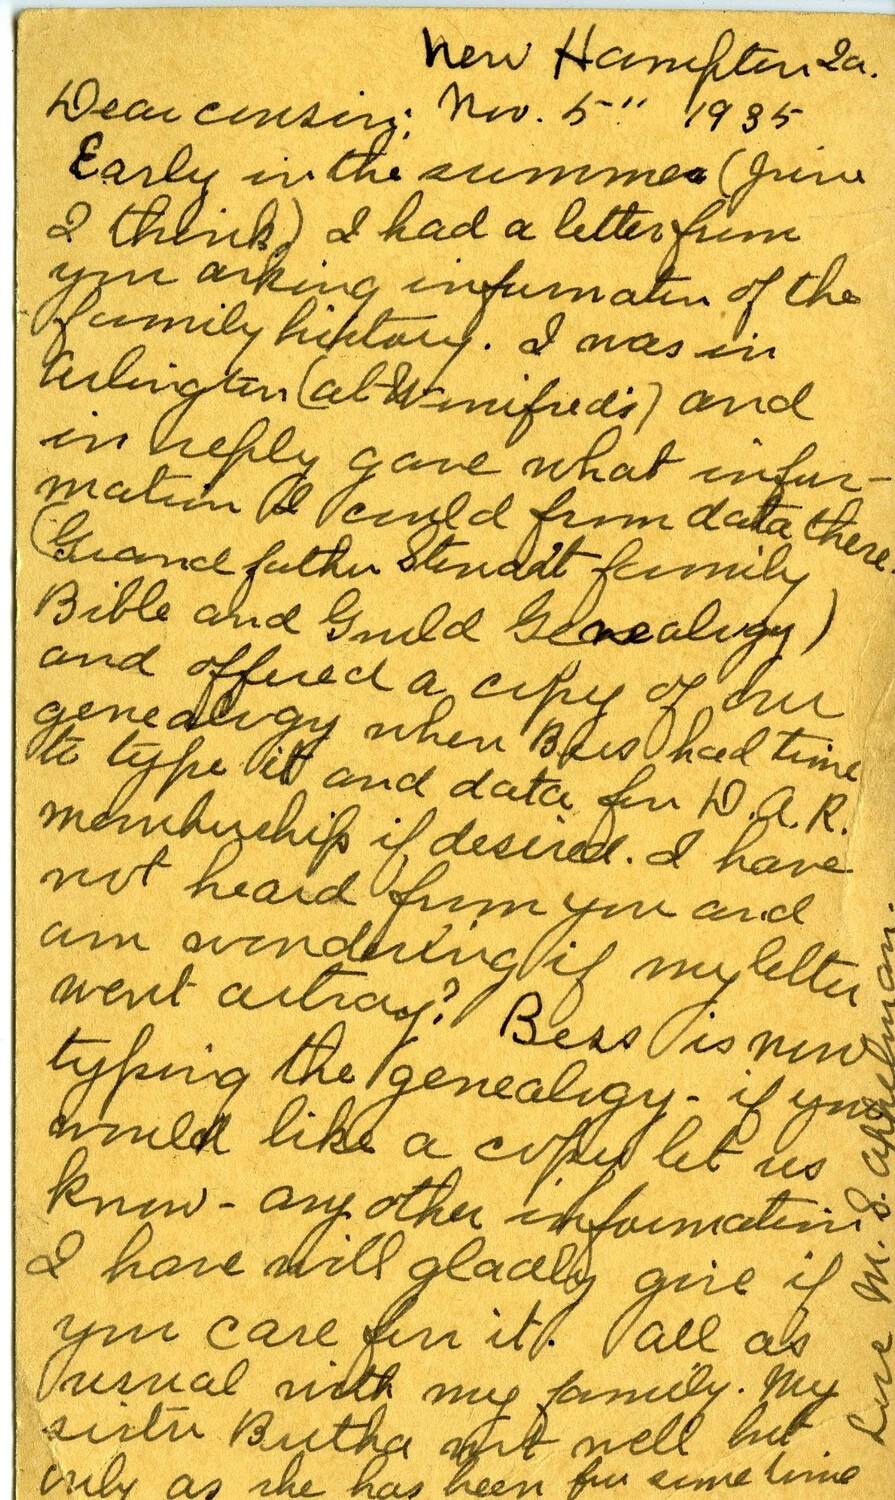 New Hampton Ia.
Dear cousin: Nov. 5" 1935
Early in the summer (June
I think) I had a letter from
you asking information of the
family history. I was in
Arlington (at Winifred's) and
in reply gave what infor-
mation I could from data there.
(Grandfather Stewart family
Bible and Guild Genealogy)
and offered a copy of our
genealogy when Bess had time
to type it and data for D.A.R.
membership if desired. I have
not heard from you and
am wondering if my letter
went astray? Bess is now
typing the genealogy - if you
would like a copy let us
know - any other information
I have will gladly give if
you care for it. All as
usual with my family. My
sister Bertha not well but
only as she has been for some time
Love M. S.